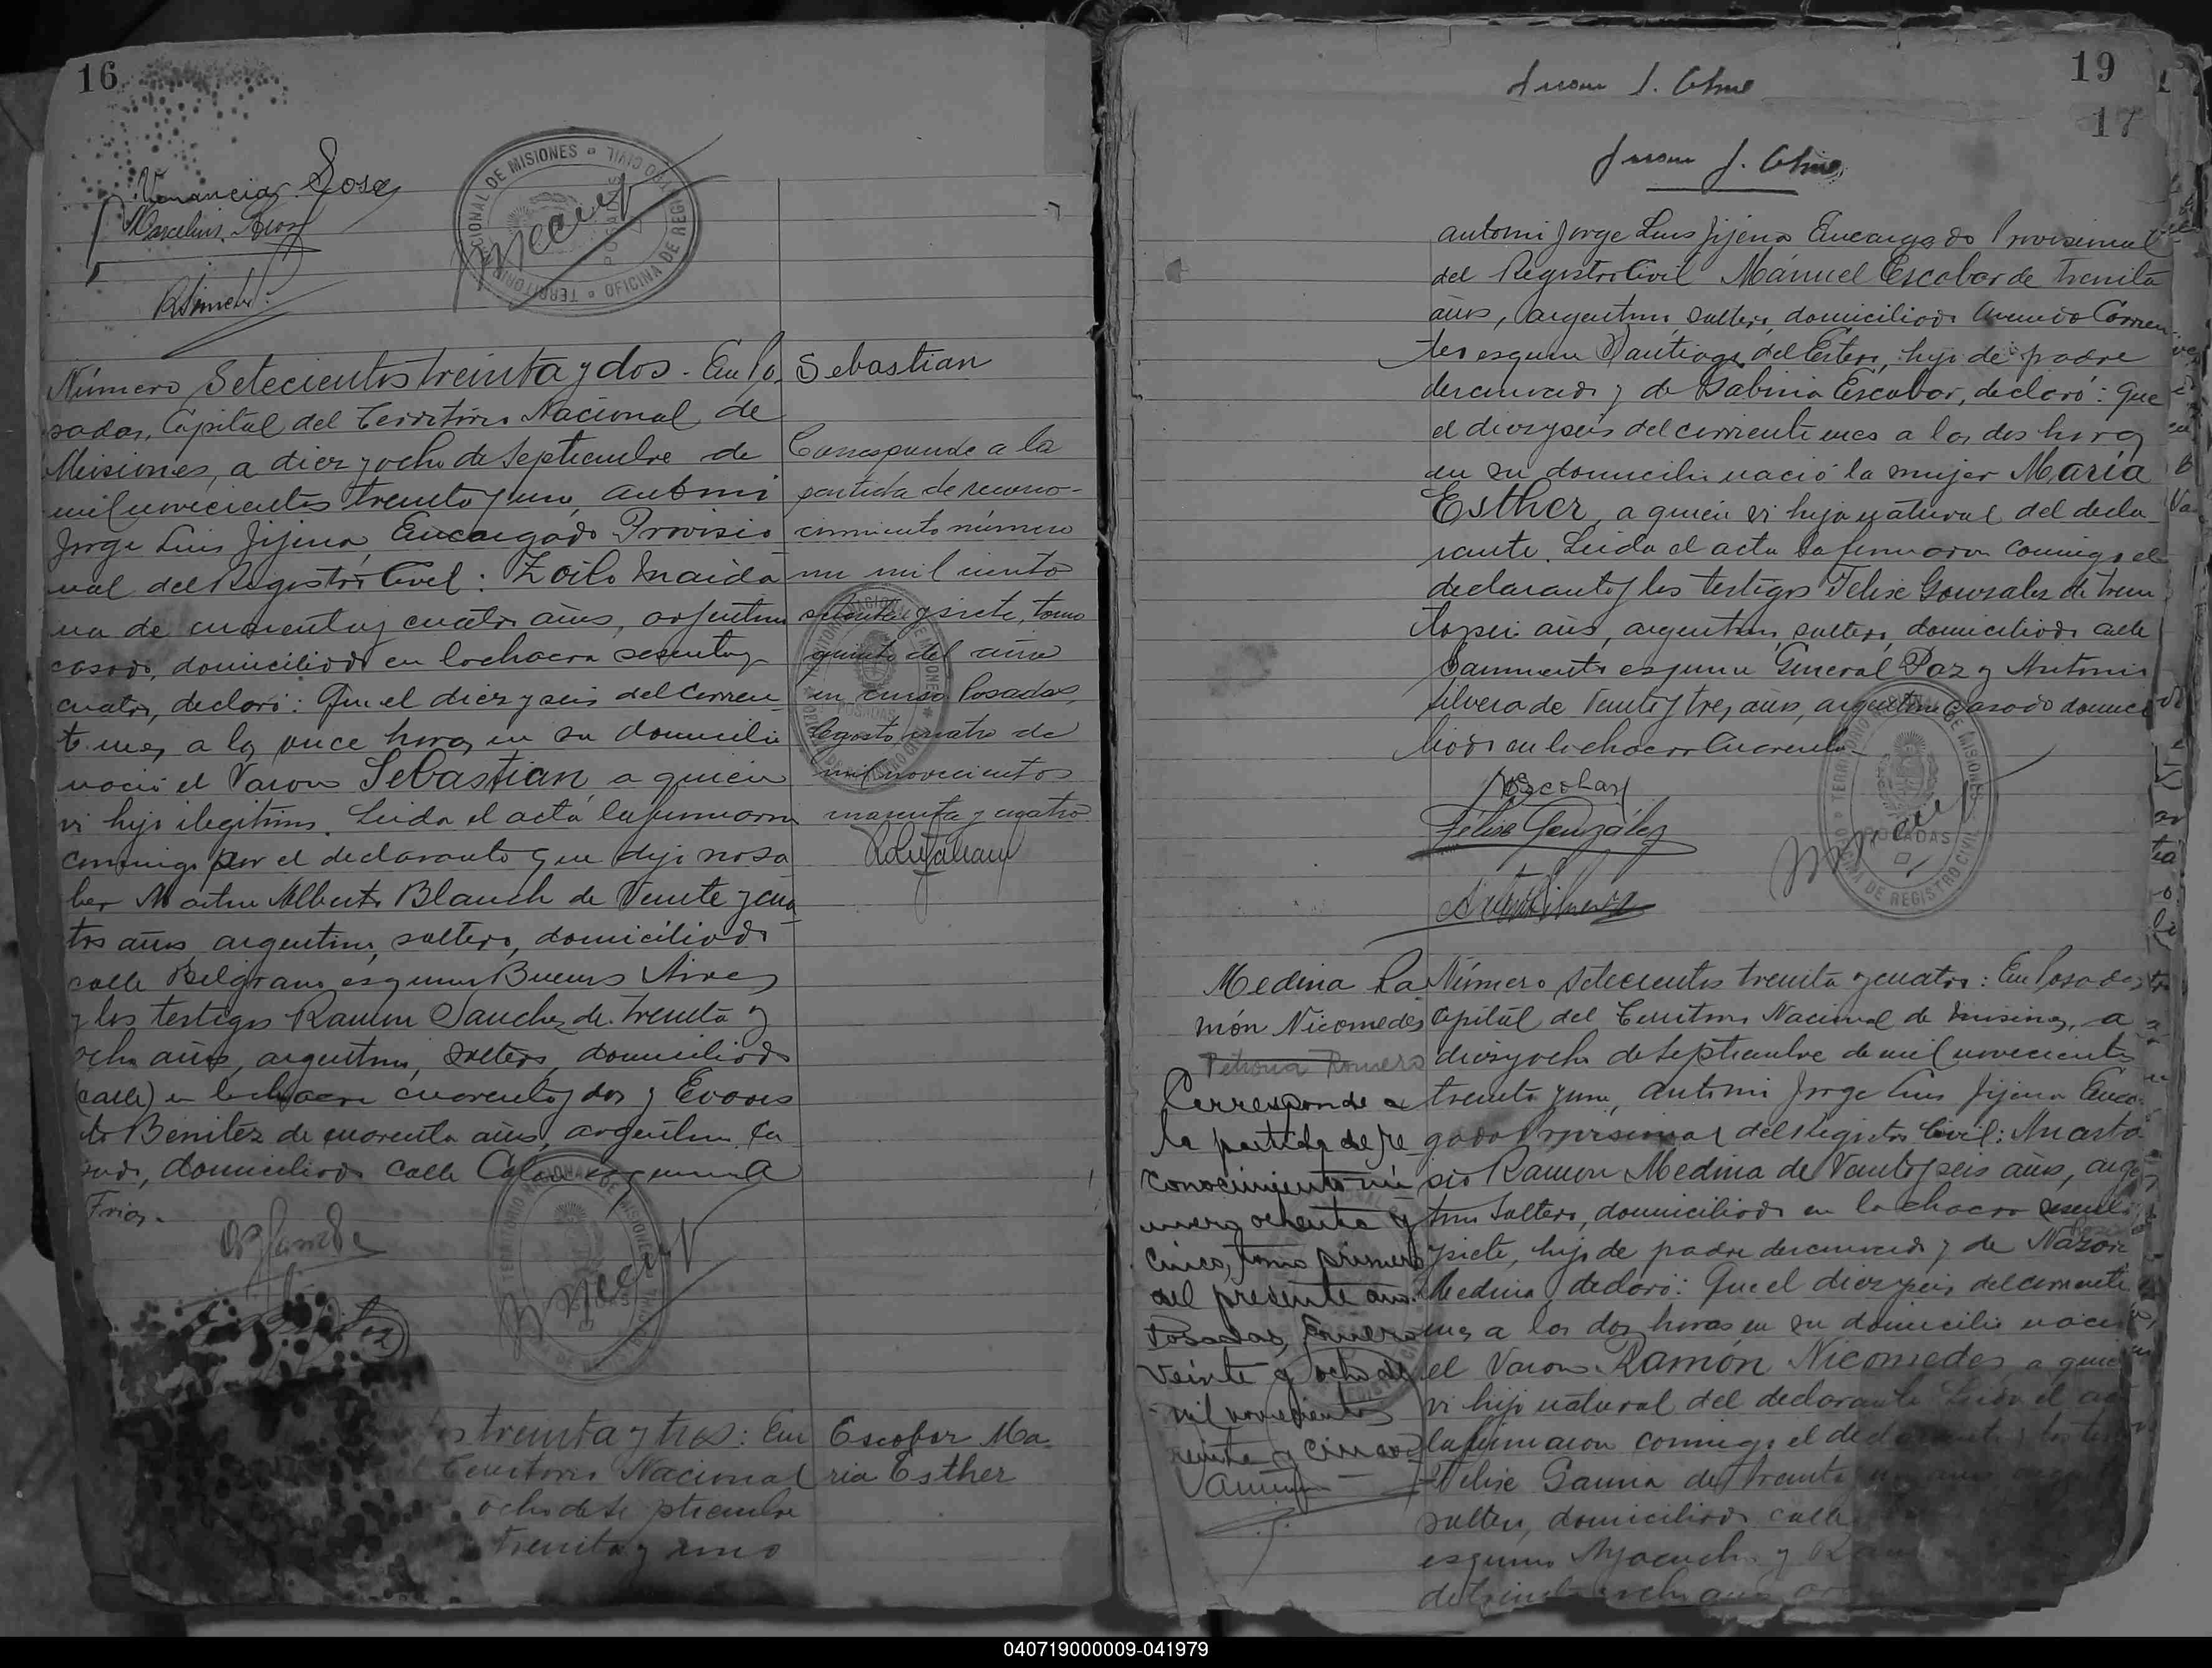 16
Venancia Sosa
Marcelino
TERRITORIO NACIONAL DE MISIONES
OFICINA DE REGISTRO CIVIL
POSADAS
Número Setecientos treinta y dos. En Po
sadas, Capital del Territorio Nacional de
Misiones, a diez y ocho de Septiembre de
mil novecientos treinta y uno, ante mi
Jorge Luis Jijena, Encargado Provisio
nal del Registro Civil: Zoilo Maida
na de cuarenta y cuatro años, argentino
casado, domiciliado en la chacra sesenta y
cuatro, declaró: Que el diez y seis del corrien
te mes a las once horas en su domicilio
nació el Varon Sebastian a quien
vi hijo ilegitimo. Leida el acta la firmaron
conmigo por el declarante que dijo no sa
ber Martin Alberto Blanch de Veinte y cua
tro años, argentino, soltero, domiciliado
calle Belgrano esquina Buenos Aires
y los testigos Ramon Sanchez de treinta y
ocho años, argentino, soltero, domiciliado
(calle) en la chacra cuarenta y dos y Evaris
to Benitez de cuarenta años, argentino ca
sado, domiciliado calle Colon esquina
Frias.
Sebastian
Corresponde a la
partida de recono-
cimiento número
mil ciento
setenta y siete, tomo
quinto del año
en curso Posadas,
Agosto cuatro de
mil novecientos
cuarenta y cuatro
TERRITORIO NACIONAL DE MISIONES
POSADAS
OFICINA DE REGISTRO CIVIL
tos treinta y tres: En
Territorio Nacional
ocho de Septiembre
treinta y uno
Escobar Ma
ria Esther
19
17
Juan J.
Juan J.
ante mi Jorge Luis Jijena Encargado Provisional
del Registro Civil Mánuel Escobar de treinta
años, argentino, soltero, domiciliado Avenida Corrien
tes esquina Santiago del Estero, hijo de padre
desconocido y de Sabina Escobar, declaró: Que
el diez y seis del corriente mes a las dos horas
en su domicilio nació la mujer María
Esther, a quien vi hija natural del decla
rante. Leida el acta la firmaron conmigo el
declarante y los testigos Felise Gonzalez de trein
ta y seis años, argentino, soltero, domiciliado calle
esquina General Paz y Antonio
Silvera de Veinte y tres años, argentino casado domici
liado en la chacra Cuarenta
MEscobar
Felise González
TERRITORIO NACIONAL DE MISIONES
POSADAS
OFICINA DE REGISTRO CIVIL
Medina Ra
món Nicomedes
Petrona Romero
Corresponde a
la partida de re
conocimiento nú
mero ochenta y
cinco, tomo primero
del presente año.
Posadas, Enero
veinte y ocho de
mil novecientos
treinta y cinco
Número Setecientos treinta y cuatro: En Posadas
Capital del Territorio Nacional de Misiones, a
diez y ocho de Septiembre de mil novecientos
treinta y uno, ante mi Jorge Luis Jijena Encar
gado Provisional del Registro Civil: Anasta
sio Ramon Medina de Veinte y seis años, argen
tino soltero, domiciliado en la chacra sesenta
y siete, hijo de padre desconocido y de Nazaria
Medina, declaró: Que el diez y seis del corriente
mes a las dos horas en su domicilio nació
el Varon Ramón Nicomedes a quien
vi hijo natural del declarante Leida el acta
la firmaron conmigo el declarante y los tes
Felise Gauna de treinta
soltero, domiciliado calle
esquina Ayacucho y
de treinta y ocho años
040719000009-041979